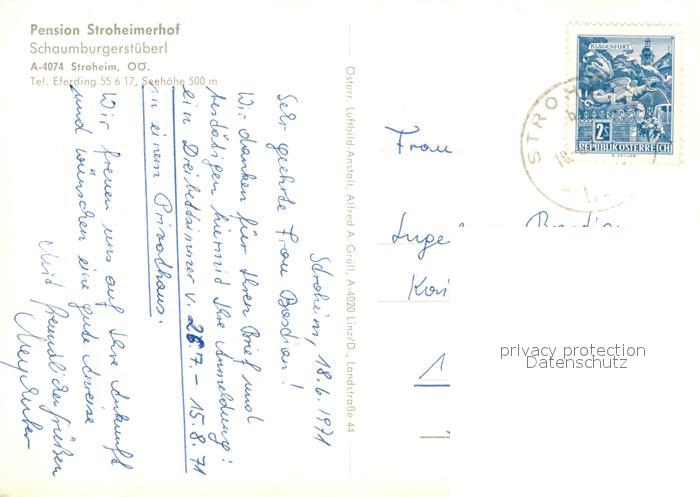 Pension Stroheimerhof
Schaumburgerstüberl
A-4074 Stroheim, OÖ.
Tel. Eferding 55 6 17, Seehöhe 500 m
Stroheim, 18.6.1971
Sehr geehrte Frau Bastian!
Wir danken für Ihren Brief und
bestätigen hiermit Ihre Anmeldung!
ein Dreibettzimmer v. 26.7. - 15.8.71
in einem Privathaus.
Wir freuen uns auf Ihre Ankunft
und wünschen eine gute Anreise
Mit freundlichen Grüßen
Österr. Luftbild-Anstalt, Alfred A. Grüll, A-4020 Linz/D., Landstraße 44
KLAGENFURT
2 S
REPUBLIK ÖSTERREICH
STROH
18.
Frau
Inge
1
privacy protection
Datenschutz